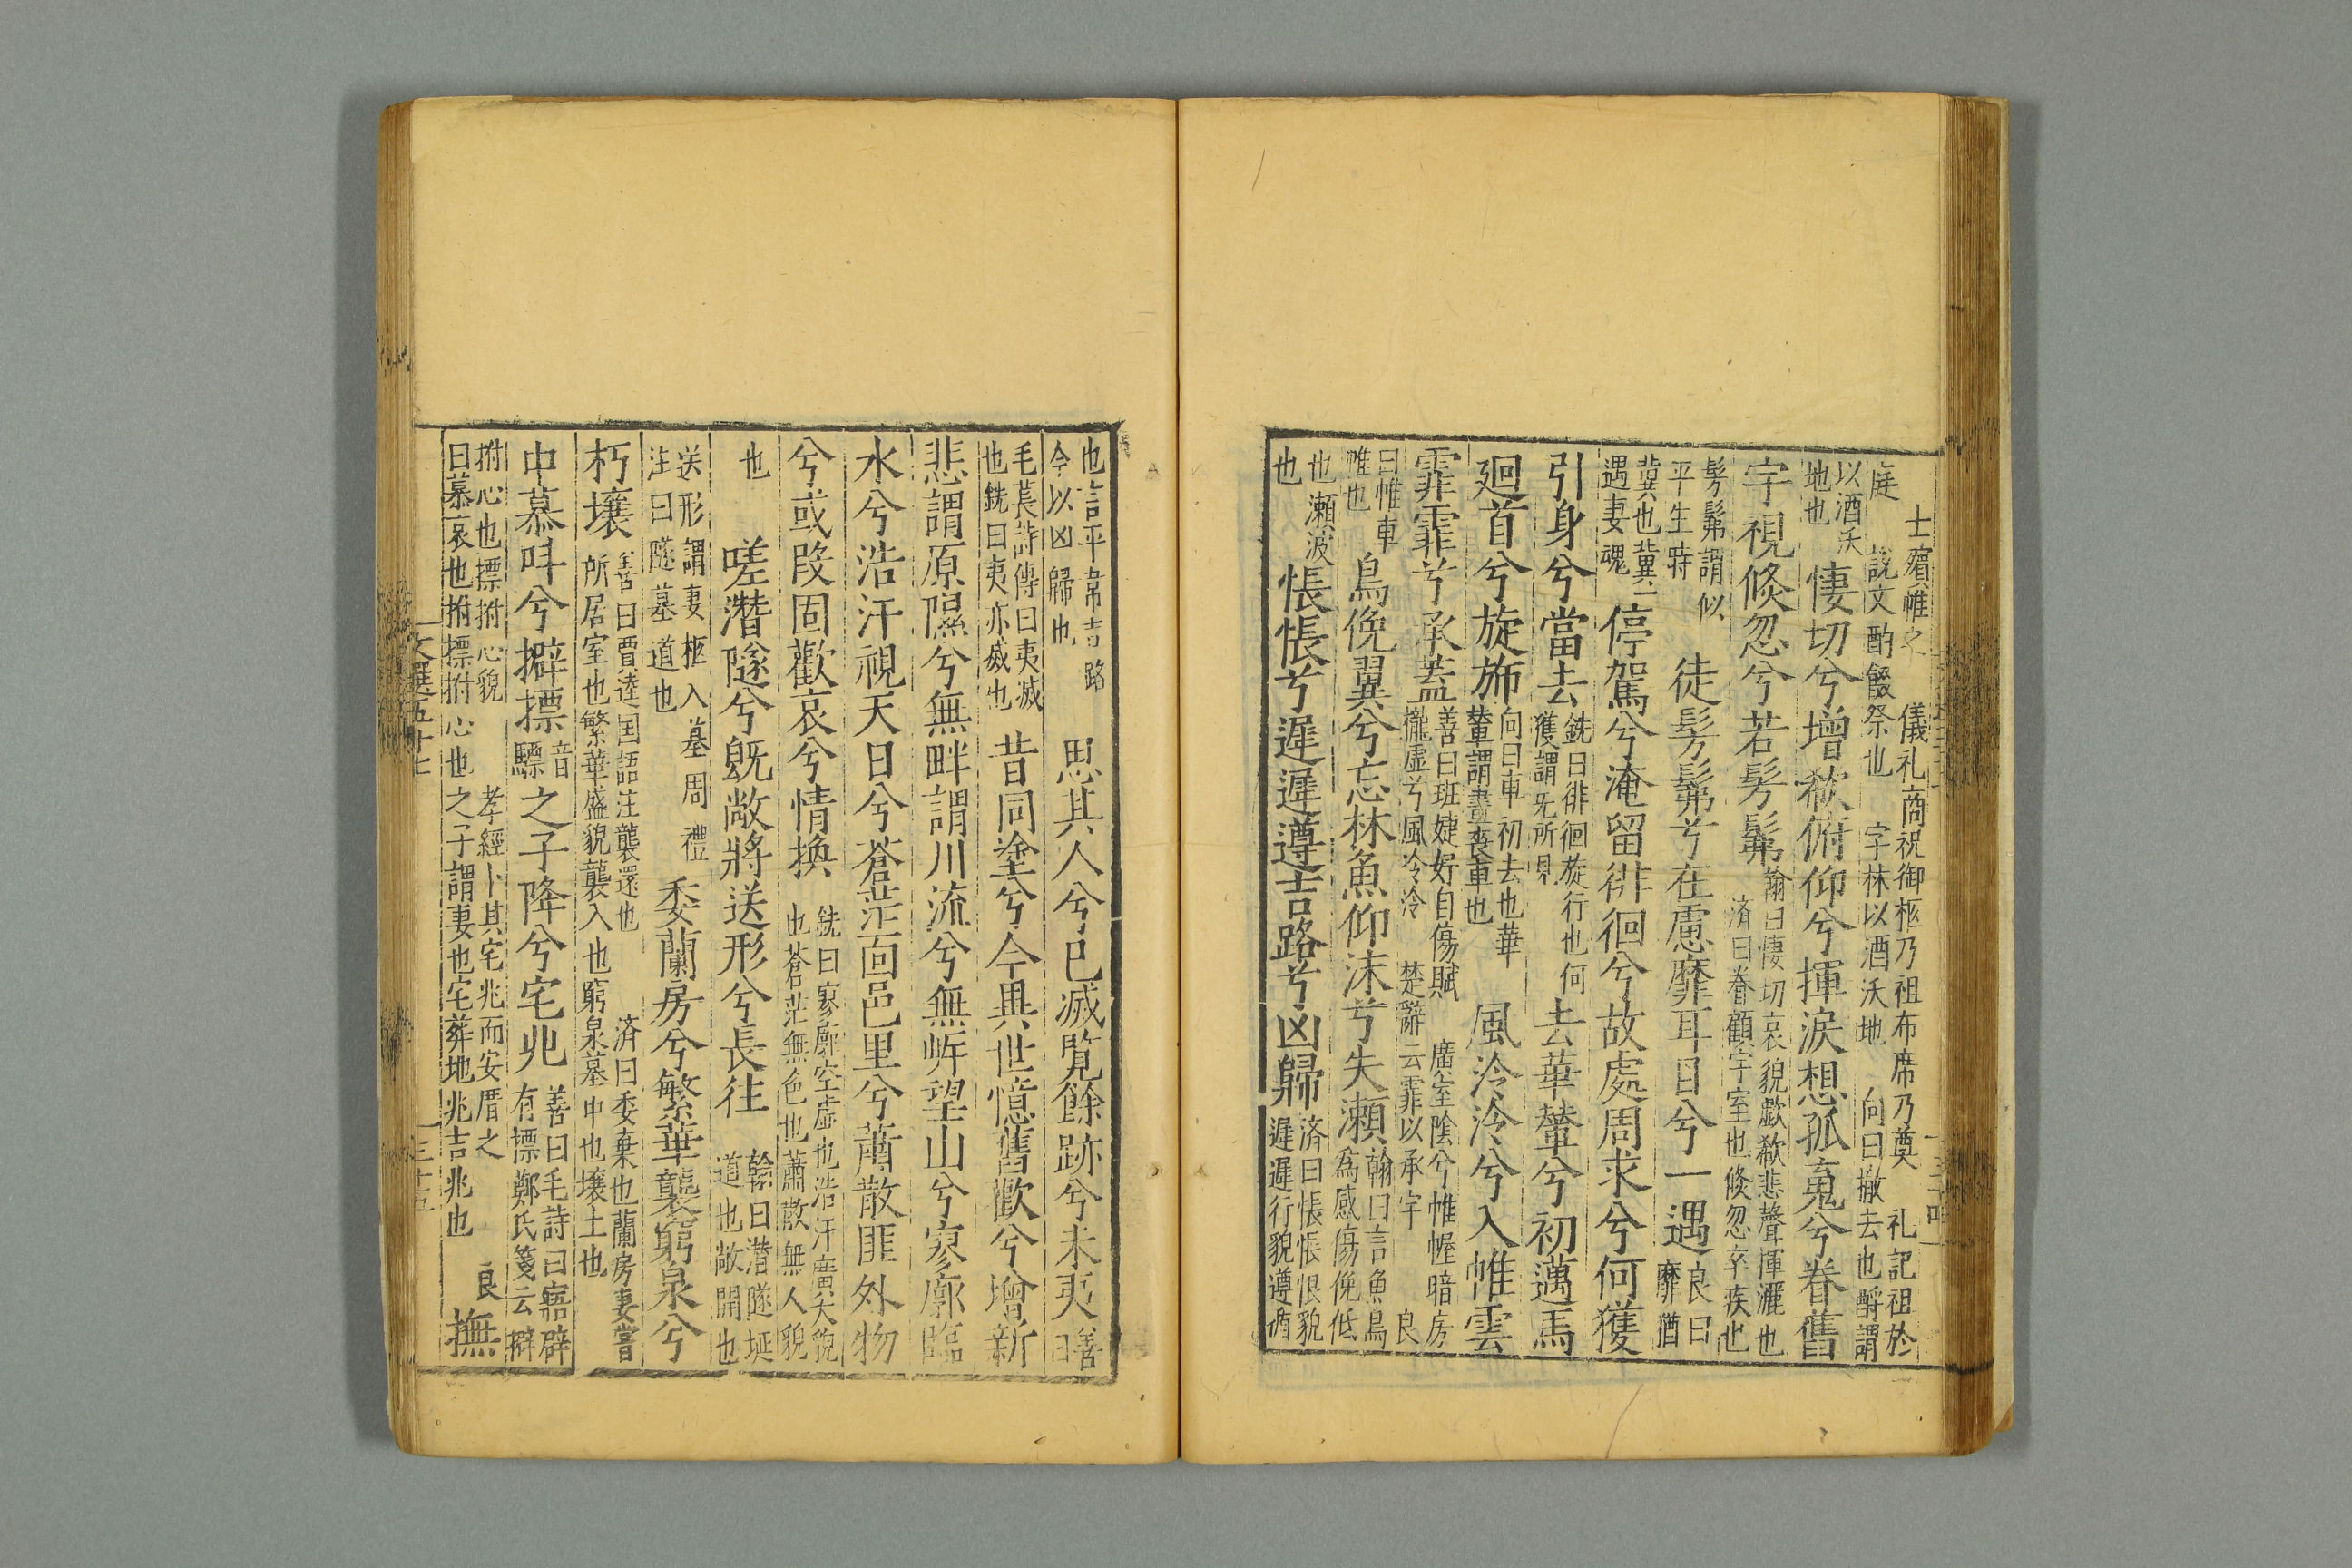 士殯帷之　儀礼商祝御柩乃祖布席乃奠　礼記祖於
庭　説文酌餟祭也　字林以酒沃地　向曰撤去也酹謂
以酒沃地也悽切兮增欷俯仰兮揮淚想孤䰟兮眷舊
宇視倏忽兮若髣髴翰曰悽切哀貌歔欷悲聲揮灑也濟曰眷顧宇室也倏忽卒疾也
髣髴謂似平生時徒髣髴兮在慮靡耳目兮一遇良曰靡猶
冀也冀二遇妻魂停駕兮淹留徘徊兮故處周求兮何獲
引身兮當去銑曰徘徊旋行也何獲謂无所見去華輦兮初邁馬
廻首兮旋旆向曰車初去也華輦謂喪車也風泠泠兮入帷雲
霏霏兮承蓋善曰班婕妤自傷賦　廣室陰兮帷幄暗房櫳虛兮風冷泠　楚辭云霏以承宇　良
曰帷車帷也鳥俛翼兮忘林魚仰沫兮失瀬翰曰言魚鳥為感傷俛低
也瀬波也悵悵兮遲遲遵吉路兮凶歸濟曰悵悵恨貌遲遲行貌遵循
也言平常吉路今以凶歸也思其人兮已滅覧餘跡兮未夷善曰
毛萇詩傳曰夷滅也銑曰夷亦滅也昔同塗兮今異世憶舊歡兮增新
悲謂原隰兮無畔謂川流兮無㟁望山兮寥廓臨
水兮浩汗視天日兮蒼茫面邑里兮蕭散匪外物
兮或改固歡哀兮情換銑曰寥廓空虛也浩汗廣大貌也蒼茫無色也蕭散無人貌
也嗟潛隧兮旣敞將送形兮長往翰曰潛隧埏道也敞開也
送形謂妻柩入墓周禮注曰隧墓道也委蘭房兮繁華襲窮泉兮
朽壤善曰賈逵囯語注襲還也　濟曰委棄也蘭房妻嘗所居室也繁華盛貌襲入也窮泉墓中也壤土也
中慕叫兮擗摽音驃之子降兮宅兆善曰毛詩曰寤辟有摽鄭氏箋云擗
拊心也摽拊心貌　孝經卜其宅兆而安厝之　良曰慕哀也拊摽拊心也之子謂妻也宅葬地兆吉兆也撫
文選五十七
三十五